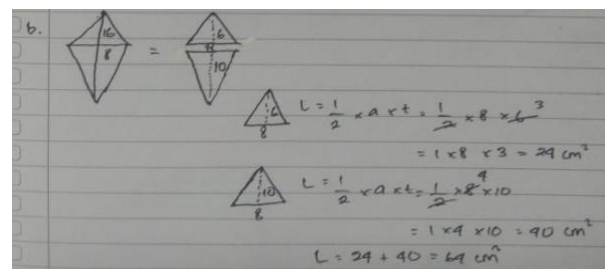 b.
16
8
=
6
8
10
6
8
L = 1/2 × a × t = 1/2 × 8 × 6 3
= 1 × 8 × 3 = 24 cm²
10
8
L = 1/2 × a × t = 1/2 × 8 4 × 10
= 1 × 4 × 10 = 40 cm²
L = 24 + 40 = 64 cm²